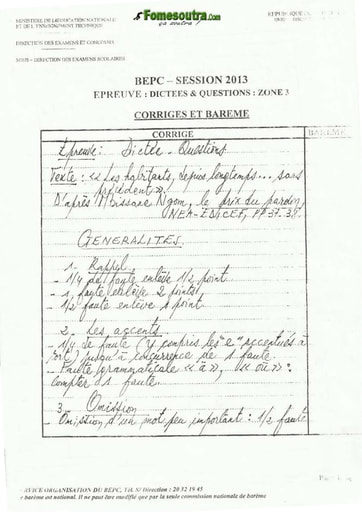 Fomesoutra.com
ça soutra !
MINISTERE DE L'EDUCATION NATIONALE
ET DE L'ENSEIGNEMENT TECHNIQUE
DIRECTION DES EXAMENS ET CONCOURS
DIRECTION DES EXAMENS SCOLAIRES
BEPC – SESSION 2013
EPREUVE : DICTEES & QUESTIONS : ZONE 3
CORRIGES ET BAREME
CORRIGE BAREME
Epreuve : Dictée - Questions
Texte : « Les habitants, depuis longtemps... sans
précédent »,
D'après Mbissane Ngom, le prix du pardon,
NEA-EDICEF, PP 37-38.
GENERALITES
1. Rappel
- 1/4 de faute enlève 1/2 point
- 1 faute enlève 2 points
- 1/2 faute enlève 1 point
2- Les accents
- 1/4 de faute (y compris les "e" accentués à
tort) jusqu'à concurrence de 1 faute
- Faute grammaticale « à », « où » :
compter 1 faute.
3- Omission
- Omission d'un mot peu important : 1/2 faute
SERVICE ORGANISATION DU BEPC, Tél. S/ Direction : 20 32 19 45
e barème est national. Il ne peut être modifié que par la seule commission nationale de barème